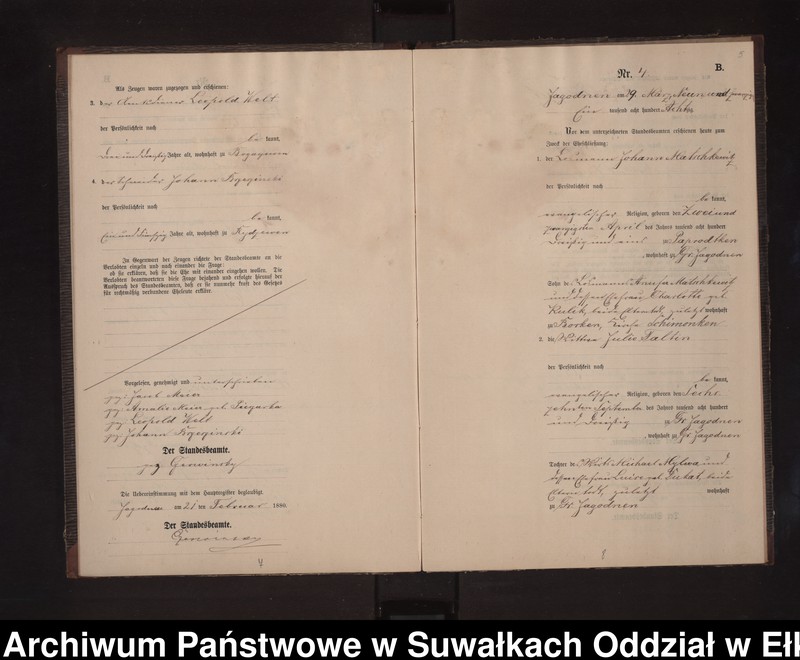 Als Zeugen waren zugezogen und erschienen:
3. der Amtsdiener Leopold Welt
der Persönlichkeit nach
be kannt,
drei und dreißig Jahre alt, wohnhaft zu
4. der Schneider Johann
der Persönlichkeit nach
be kannt,
ein und dreißig Jahre alt, wohnhaft zu
In Gegenwart der Zeugen richtete der Standesbeamte an die
Verlobten einzeln und nach einander die Frage:
ob sie erklären, daß sie die Ehe mit einander eingehen wollen. Die
Verlobten beantworteten diese Frage bejahend und erfolgte hierauf der
Ausspruch des Standesbeamten, daß er sie nunmehr kraft des Gesetzes
für rechtmäßig verbundene Eheleute erkläre.
Vorgelesen, genehmigt und unterschrieben
gez. Jacob
gez. Amalie geb.
gez. Leopold Welt
gez. Johann
Der Standesbeamte.
gez.
Die Uebereinstimmung mit dem Hauptregister beglaubigt.
Jagodnen am 21 ten Februar 1880.
Der Standesbeamte.
4
Nr. 4
B.
Jagodnen am 29 März
Ein tausend acht hundert Achtzig
Vor dem unterzeichneten Standesbeamten erschienen heute zum
Zweck der Eheschließung:
1. der Losmann Johann
der Persönlichkeit nach
be kannt,
evangelischer Religion, geboren den Zwei und
zwanzigsten April des Jahres tausend acht hundert
Dreißig und eins zu Paprodtken
, wohnhaft zu Gr. Jagodnen
Sohn des Losmann
und dessen Ehefrau Charlotte geb.
beide Altern todt, zuletzt wohnhaft
zu Borken, Kreis Schimonken
2. die Wittwe Julie
der Persönlichkeit nach
be kannt,
evangelischer Religion, geboren den Sechs
zehnten September des Jahres tausend acht hundert
und Dreißig zu Gr. Jagodnen
, wohnhaft zu Gr. Jagodnen
Tochter des Wirth Michael und
dessen Ehefrau Luise geb. beide
Altern todt, zuletzt wohnhaft
zu Gr. Jagodnen
Archiwum Państwowe w Suwałkach Oddział w Ełk